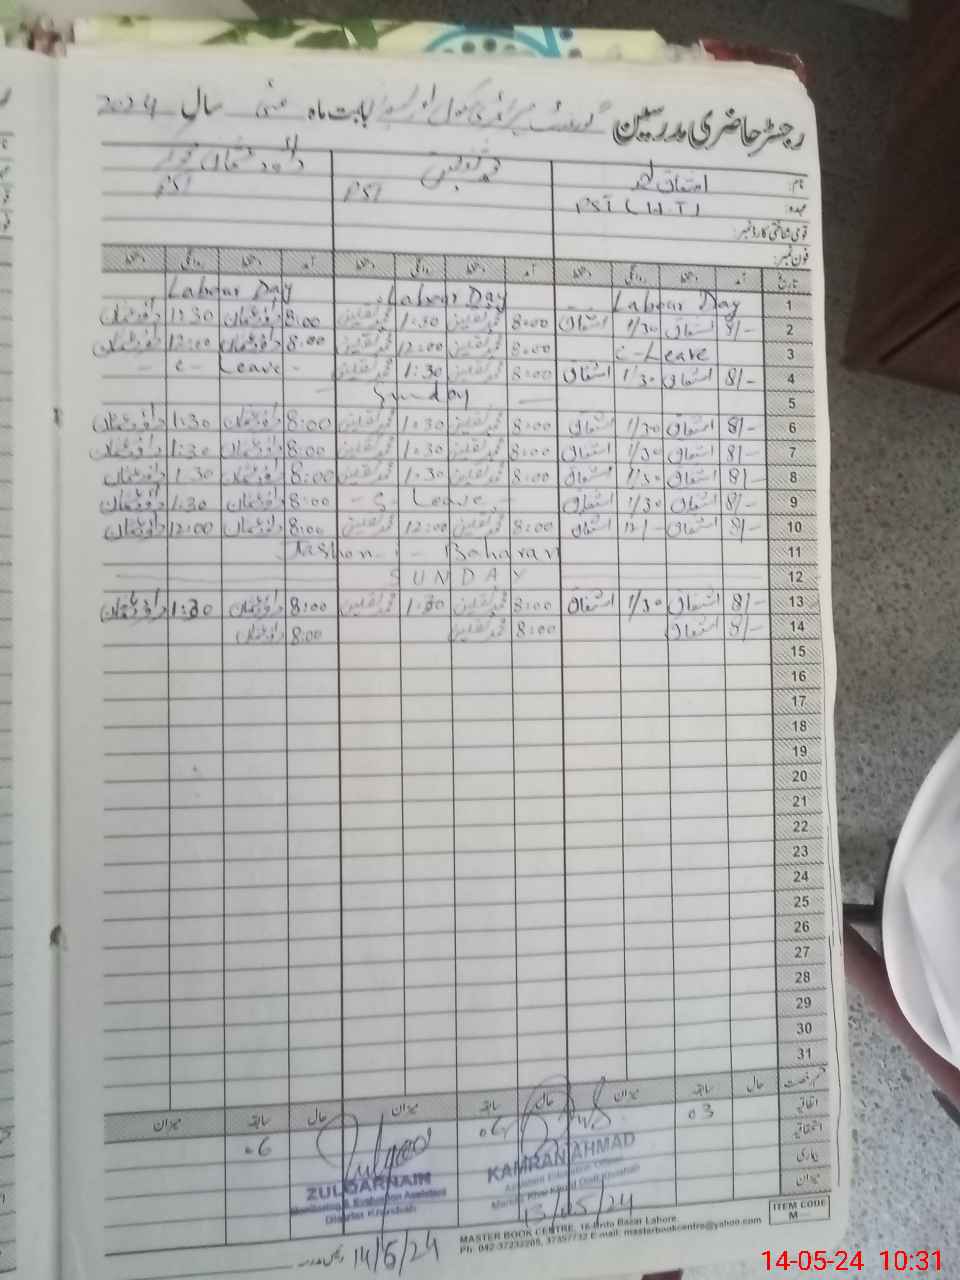 رجسٹر حاضری مدرسین بابت ماہ مئی سال 2024
نام: اشفاق احمد
عہدہ: PST (H.T) PST PST
قومی شناختی کارڈ نمبر:
فون نمبر:
تاریخ آمد دستخط روانگی دستخط آمد دستخط روانگی دستخط آمد دستخط روانگی دستخط
1 Labour Day Labour Day Labour Day
2 8/- اشفاق 1/30 اشفاق 8:00 محمد ثقلین 1:30 محمد ثقلین 8:00 داؤد عثمان 1:30 داؤد عثمان
3 c-Leave 8:00 محمد ثقلین 12:00 محمد ثقلین 8:00 داؤد عثمان 12:00 داؤد عثمان
4 8/- اشفاق 1/30 اشفاق 8:00 محمد ثقلین 1:30 محمد ثقلین - c- Leave -
5 Sunday
6 8/- اشفاق 1/30 اشفاق 8:00 محمد ثقلین 1:30 محمد ثقلین 8:00 داؤد عثمان 1:30 داؤد عثمان
7 8/- اشفاق 1/30 اشفاق 8:00 محمد ثقلین 1:30 محمد ثقلین 8:00 داؤد عثمان 1:30 داؤد عثمان
8 8/- اشفاق 1/30 اشفاق 8:00 محمد ثقلین 1:30 محمد ثقلین 8:00 داؤد عثمان 1:30 داؤد عثمان
9 8/- اشفاق 1/30 اشفاق - S - Leave - 8:00 داؤد عثمان 1:30 داؤد عثمان
10 8/- اشفاق 12/- اشفاق 8:00 محمد ثقلین 12:00 محمد ثقلین 8:00 داؤد عثمان 12:00 داؤد عثمان
11 Jashan-i-Baharan
12 SUNDAY
13 8/- اشفاق 1/30 اشفاق 8:00 محمد ثقلین 1:30 محمد ثقلین 8:00 داؤد عثمان 1:30 داؤد عثمان
14 8/- اشفاق 8:00 محمد ثقلین 8:00 داؤد عثمان
15
16
17
18
19
20
21
22
23
24
25
26
27
28
29
30
31
قسم رخصت حال سابقہ میزان حال سابقہ میزان حال سابقہ میزان
اتفاقیہ 03 06 06
استحقاقیہ
بیماری
میزان
KAMRAN AHMAD
Assistant Education Officer
13/05/24
ZULQARNAIN
Monitoring & Evaluation Assistant
District Khushab
14/5/24
ITEM CODE
M
MASTER BOOK CENTRE, 16-Urdu Bazar Lahore.
Ph: 042-37232205, 37357732 E-mail: masterbookcentre@yahoo.com
14-05-24 10:31